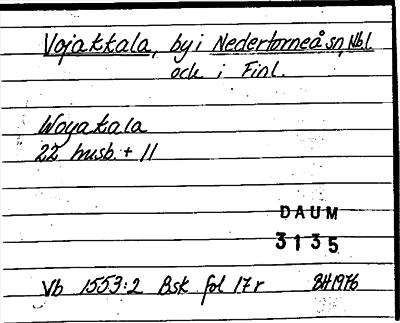 Vojakkala, by i Nedertorneå sn, Nbl.
och i Finl.
Woyakala
22 husb. + 11
DAUM
3135
Vb 1553:2 Bsk fol 17r BH 1976